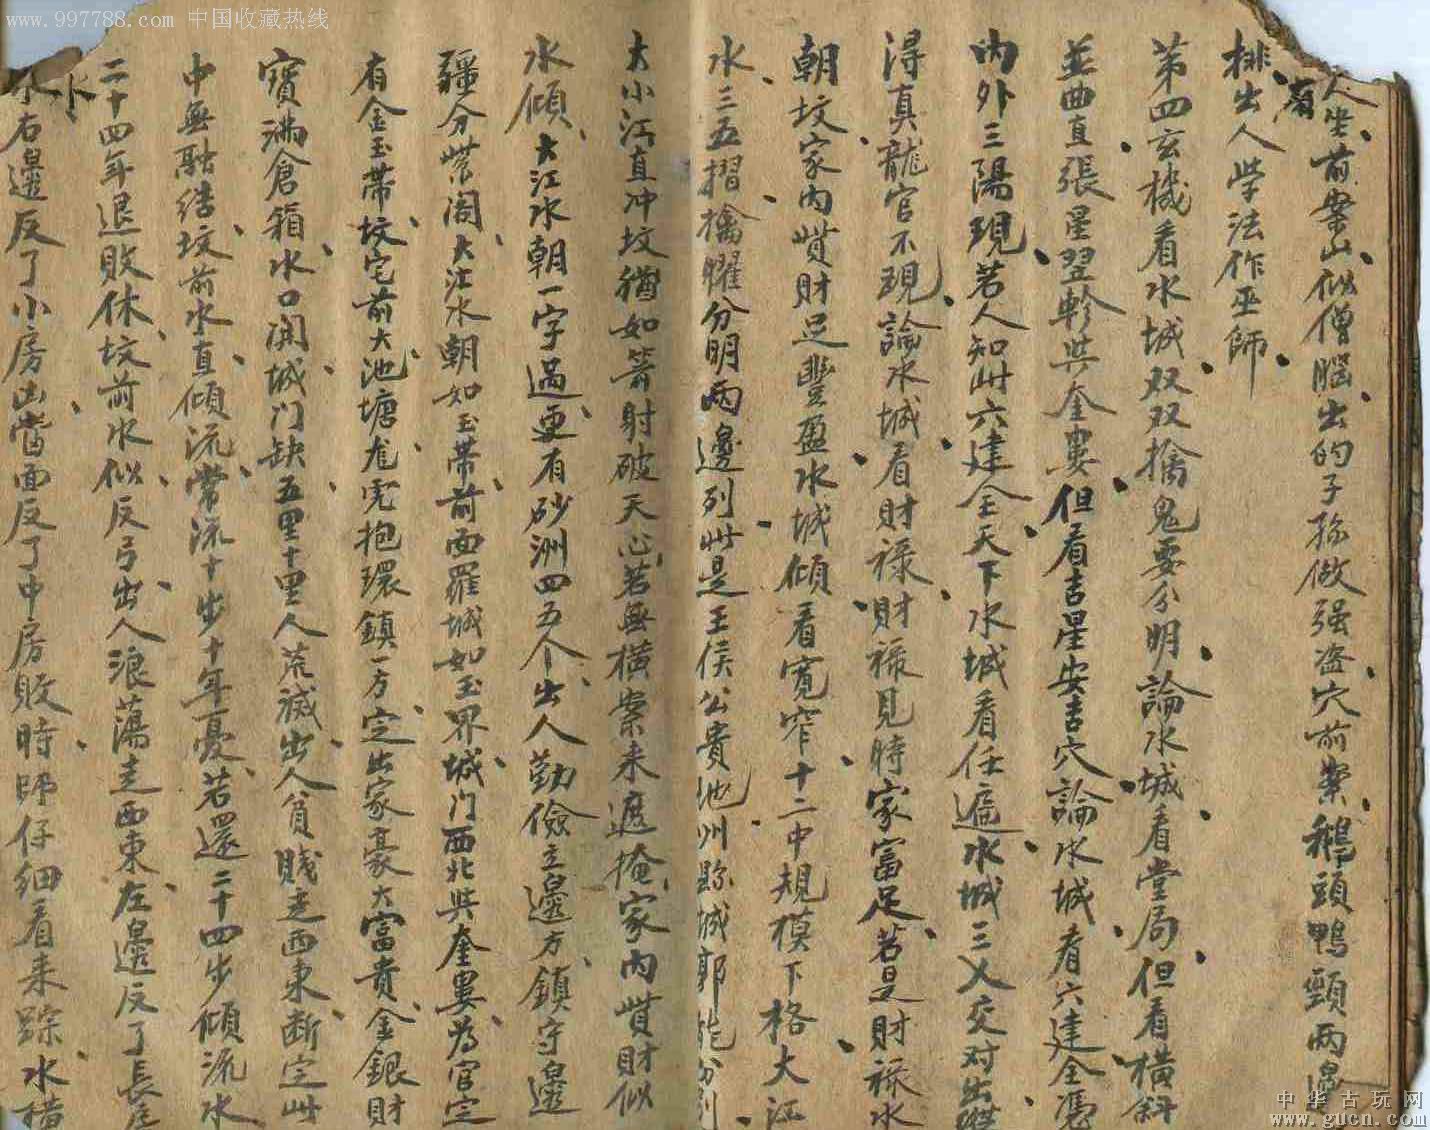 www.997788.com 中国收藏热线
人坐前案山似僧腦出的子孫做强盗穴前案鵝頭鴨頸兩邊
有
排出人学法作巫師
第四玄機看水城双双擒鬼要分明論水城看堂局但看横斜
並曲直張星翌軫共奎婁但看吉星安吉穴論水城看六建全憑
内外三陽現若人知此六建全天下水城看任遍水城三义交对出
淂真龍官不現論水城看財禄財禄見時家富足若是財禄水
朝坟家内貲財足豐盈水城傾看寛窄十二中規模下格大江
水三五摺擒耀分明兩邊列此是王侯公貴地州縣城郭能分别
大小江直冲坟猶如箭射破天心若無横案来遮掩家内貲財似
水傾大江水朝一字過更有砂洲四五个出人勤儉立邊方鎮守邊
疆分紫阁大江水朝如玉帶前面羅城如玉界城门西北共奎婁为官定
有金玉帶坟宅前大池塘龙虎抱環鎮一方定出家豪大富貴金銀財
寳滿倉箱水口開城门缺五里十里人荒滅出人貧賤走西東断定此
中無融结坟前水直傾流常流十步十年憂若還二十四步傾流水
二十四年退敗休坟前水似反弓出人浪蕩走西東左邊反了長房
水右邊反了小房凶當面反了中房敗時师仔细看来踪水横
中华古玩网
www.gucn.com